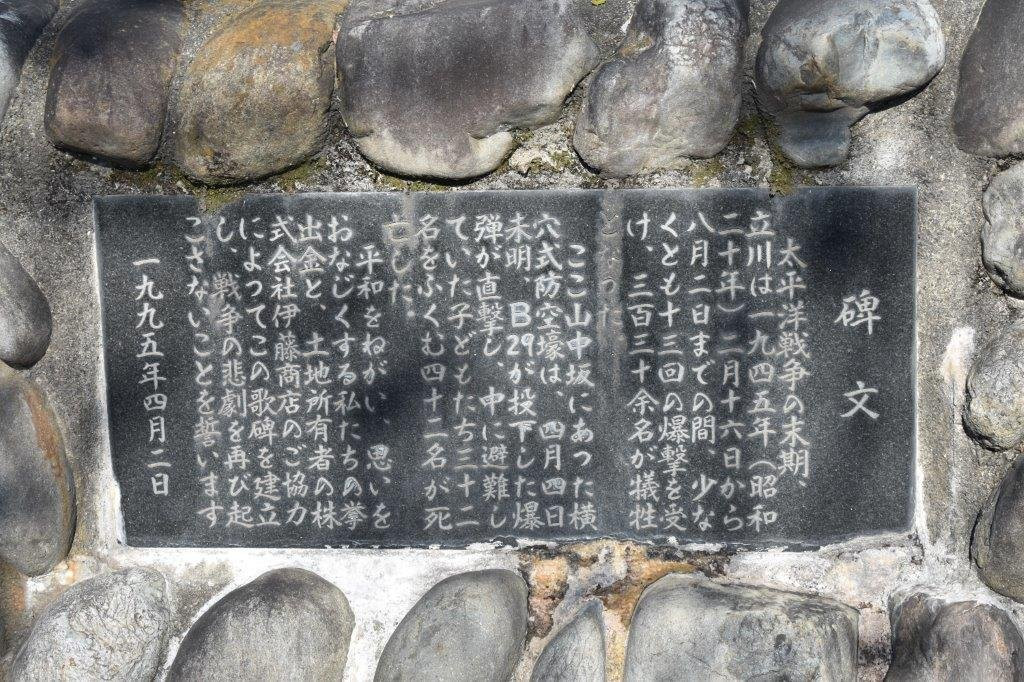 碑文
太平洋戦争の末期、
立川は一九四五年（昭和
二十年）二月十六日から
八月二日までの間、少な
くとも十三回の爆撃を受
け、三百三十余名が犠牲
となった
ここ山中坂にあった横
穴式防空壕は、四月四日
未明、B29が投下した爆
弾が直撃し、中に避難し
ていた子どもたち三十二
名をふくむ四十二名が死
亡した。
平和をねがい、思いを
おなじくする私たちの拳
出金と、土地所有者の株
式会社伊藤商店のご協力
によってこの歌碑を建立
し、戦争の悲劇を再び起
こさないことを誓います
一九九五年四月二日